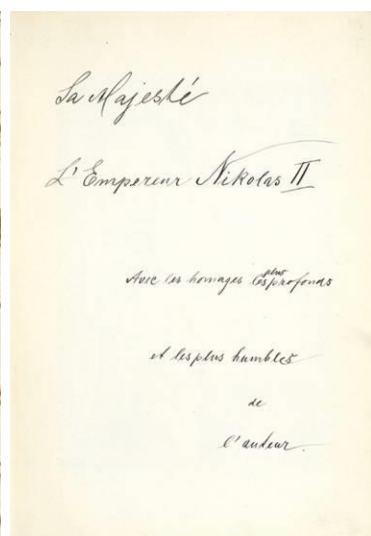 Sa Majesté
L'Empereur Nikolas II
Avec les homages les plus profonds
et les plus humbles
de
l'auteur.